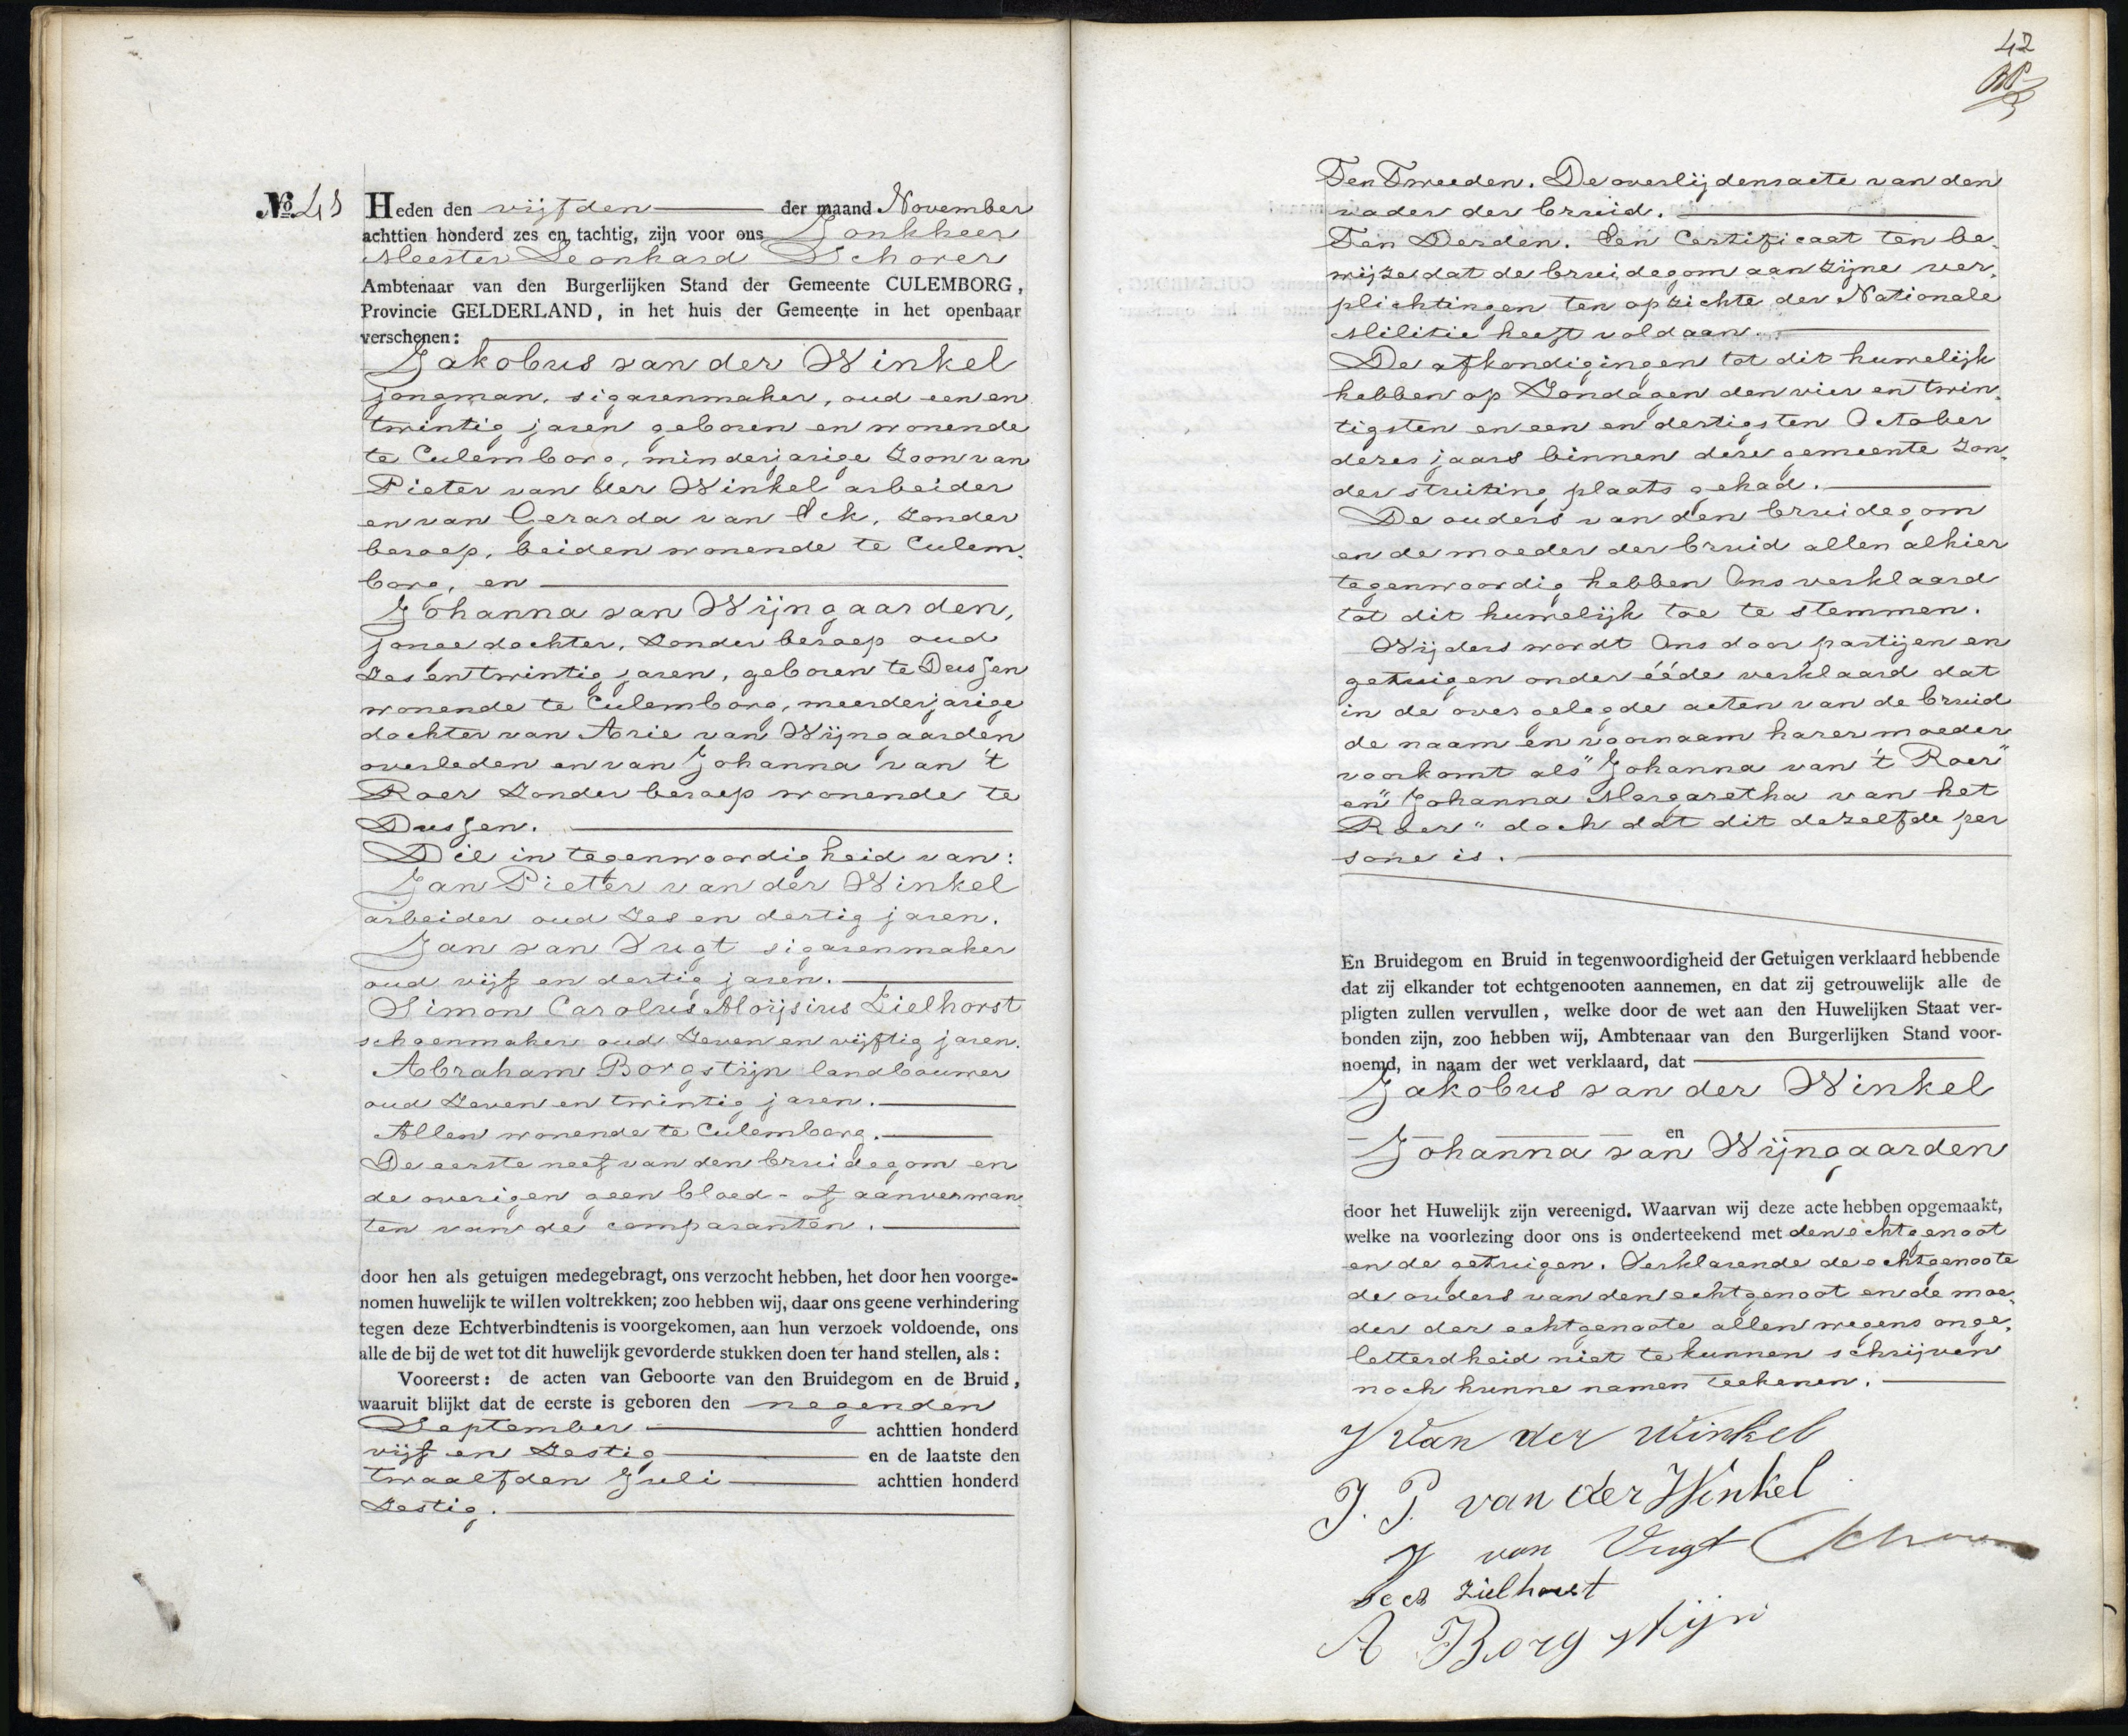 No. 41 Heden den vijfden der maand November
achttien honderd zes en tachtig, zijn voor ons Jonkheer
Meester Leonhard Schorer
Ambtenaar van den Burgerlijken Stand der Gemeente CULEMBORG,
Provincie GELDERLAND, in het huis der Gemeente in het openbaar
verschenen:
Jakobus van der Winkel
jongman, sigarenmaker, oud een en
twintig jaren geboren en wonende
te Culemborg, minderjarige zoon van
Pieter van der Winkel arbeider
en van Gerarda van Eck, zonder
beroep, beiden wonende te Culem-
borg, en
Johanna van Wijngaarden,
jongedochter, zonder beroep oud
zes en twintig jaren, geboren te Dussen
wonende te Culemborg, meerderjarige
dochter van Arie van Wijngaarden
overleden en van Johanna van 't
Roer zonder beroep wonende te
Dussen.
Die in tegenwoordigheid van:
Jan Pieter van der Winkel
arbeider oud zes en dertig jaren.
Jan van Vugt sigarenmaker
oud vijf en dertig jaren.
Simon Carolus Aloijsius Zielhorst
schoenmaker oud zeven en vijftig jaren.
Abraham Borgstijn landbouwer
oud zeven en twintig jaren.
Allen wonende te Culemborg.
De eerste neef van den bruidegom en
de overigen geen bloed- of aanverwan-
ten van de comparanten.
door hen als getuigen medegebragt, ons verzocht hebben, het door hen voorge-
nomen huwelijk te willen voltrekken; zoo hebben wij, daar ons geene verhindering
tegen deze Echtverbindtenis is voorgekomen, aan hun verzoek voldoende, ons
alle de bij de wet tot dit huwelijk gevorderde stukken doen ter hand stellen, als:
Vooreerst: de acten van Geboorte van den Bruidegom en de Bruid,
waaruit blijkt dat de eerste is geboren den negenden
September achttien honderd
vijf en zestig en de laatste den
twaalfden Juli achttien honderd
zestig.
42
Ten Tweeden. De overlijdensacte van den
vader der bruid.
Ten Derden. Een Certificaat ten be-
wijze dat de bruidegom aan zijne ver-
plichtingen ten opzichte der Nationale
Militie heeft voldaan.
De afkondigingen tot dit huwelijk
hebben op Zondagen den vier en twin-
tigsten en een en dertigsten October
dezes jaars binnen deze gemeente zon-
der stuiting plaats gehad.
De ouders van den bruidegom
en de moeder der bruid allen alhier
tegenwoordig hebben Ons verklaard
tot dit huwelijk toe te stemmen.
Wijders wordt Ons door partijen en
getuigen onder ééde verklaard dat
in de overgelegde acten van de bruid
de naam en voornaam harer moeder
voorkomt als "Johanna van 't Roer"
en "Johanna Margaretha van het
Roer" doch dat dit dezelfde per
sone is.
En Bruidegom en Bruid in tegenwoordigheid der Getuigen verklaard hebbende
dat zij elkander tot echtgenooten aannemen, en dat zij getrouwelijk alle de
pligten zullen vervullen, welke door de wet aan den Huwelijken Staat ver-
bonden zijn, zoo hebben wij, Ambtenaar van den Burgerlijken Stand voor-
noemd, in naam der wet verklaard, dat
Jakobus van der Winkel
en
Johanna van Wijngaarden
door het Huwelijk zijn vereenigd. Waarvan wij deze acte hebben opgemaakt,
welke na voorlezing door ons is onderteekend met den echtgenoot
en de getuigen. Verklarende de echtgenoote
de ouders van den echtgenoot en de moe-
der der echtgenoote allen wegens onge-
letterdheid niet te kunnen schrijven
noch hunne namen teekenen.
J van der Winkel
J. P. van der Winkel
J van Vugt Schorer
Zielhorst
A Borgstijn